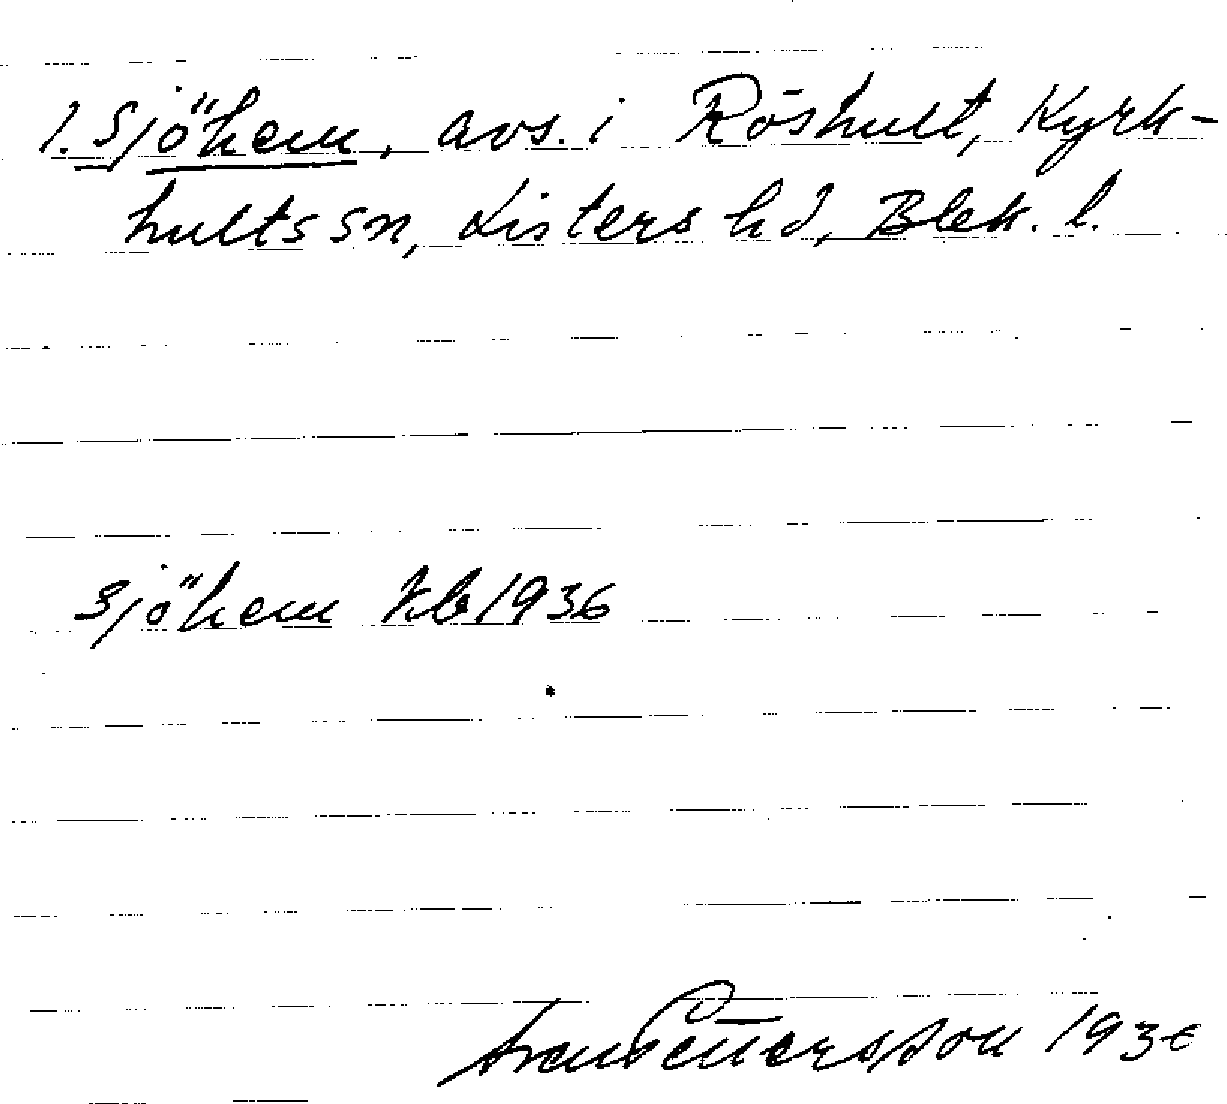 1. Sjöhem, avs. i Röshult, Kyrk-
hults sn, Listers hd, Blek. l.
Sjöhem Kb 1936
Pettersson 1936